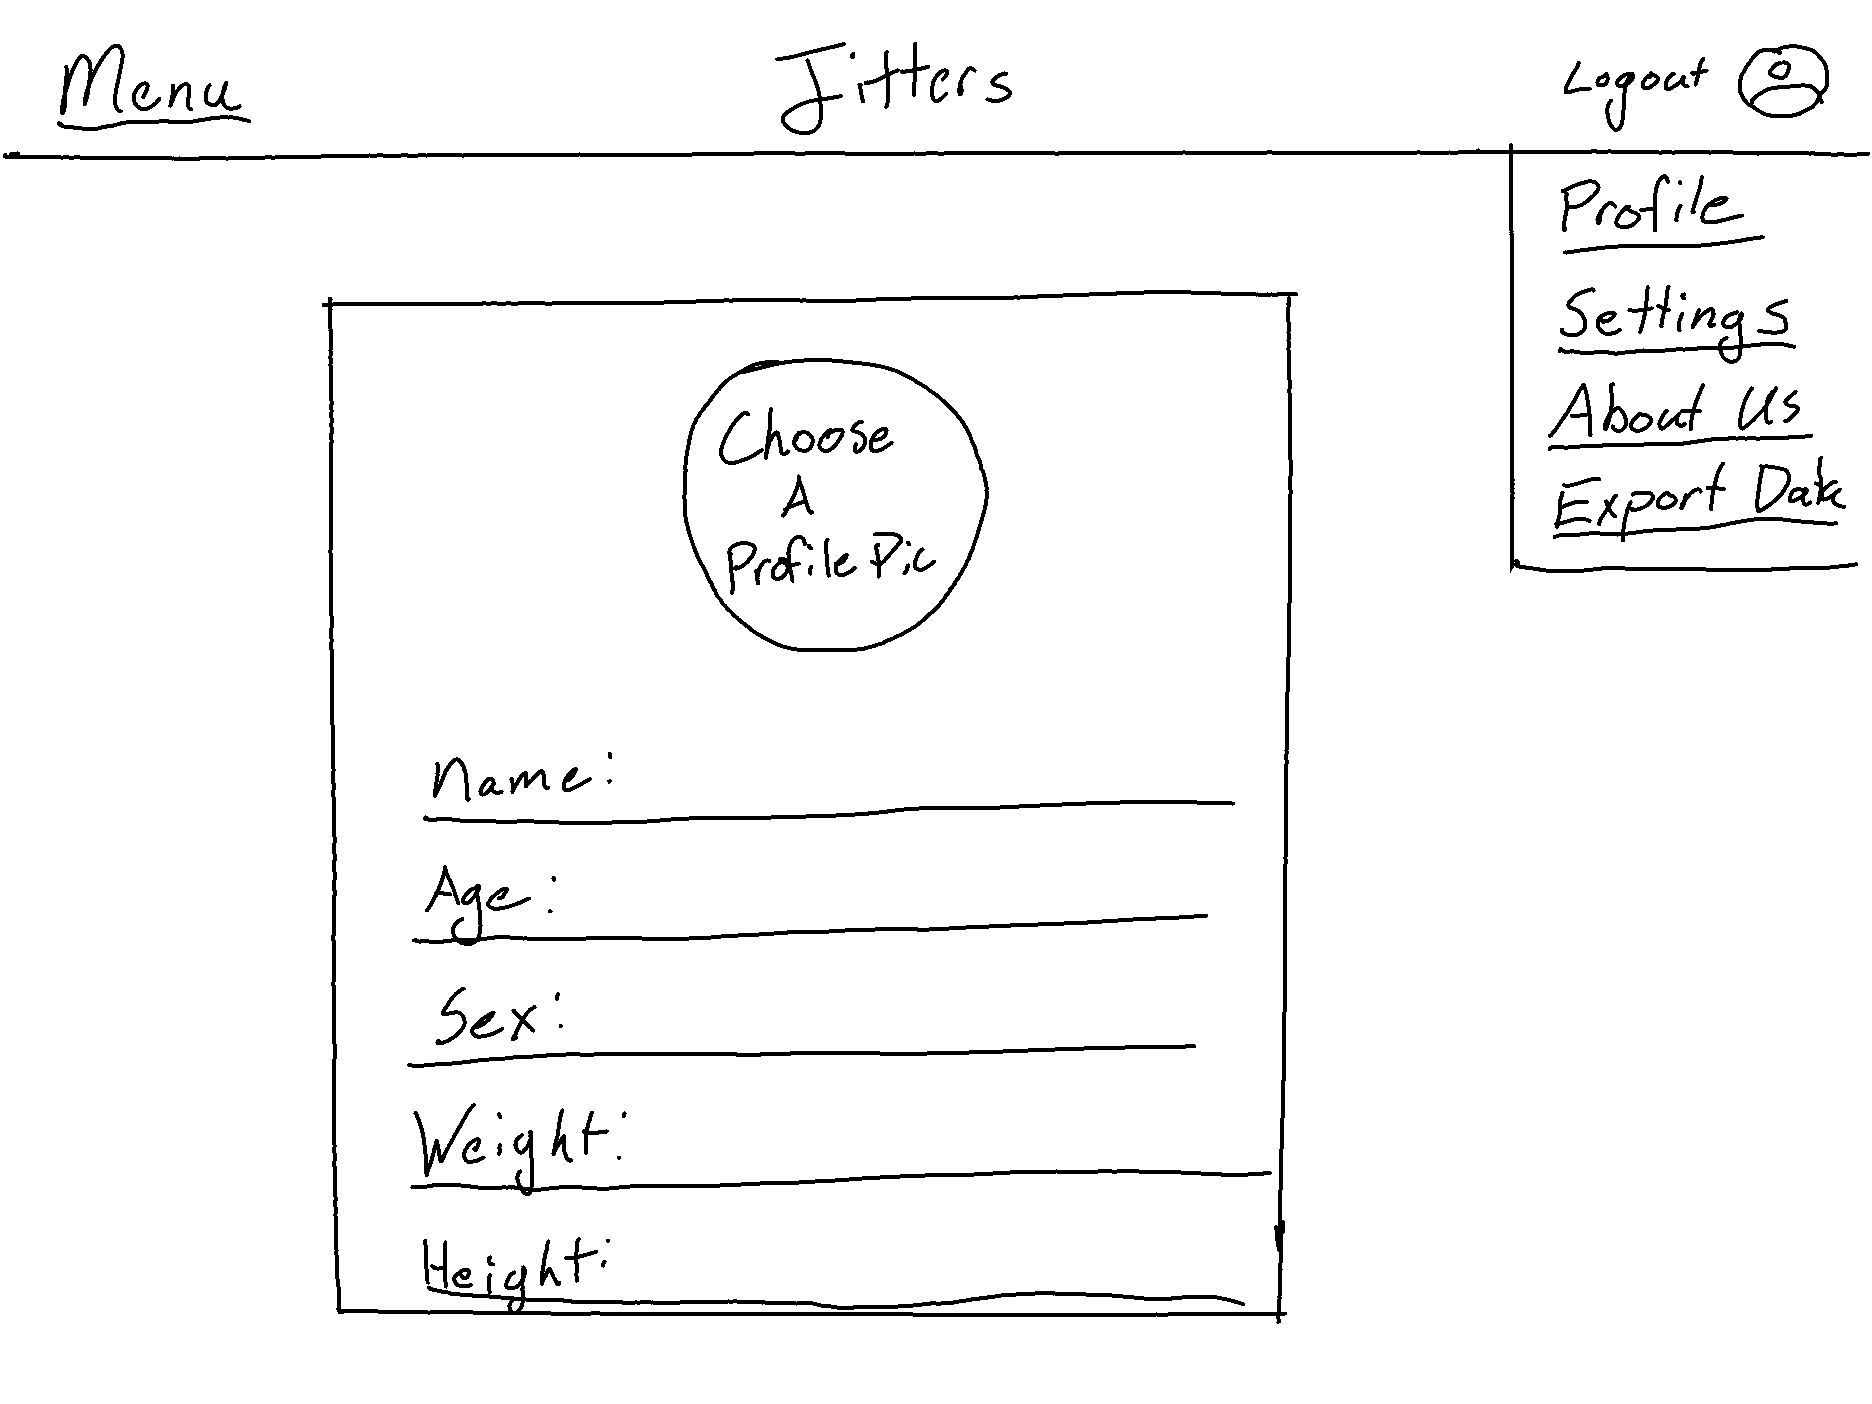 Menu
Jitters
Logout
Profile
Settings
About Us
Export Data
Choose
A
Profile Pic
Name:
Age:
Sex:
Weight:
Height: